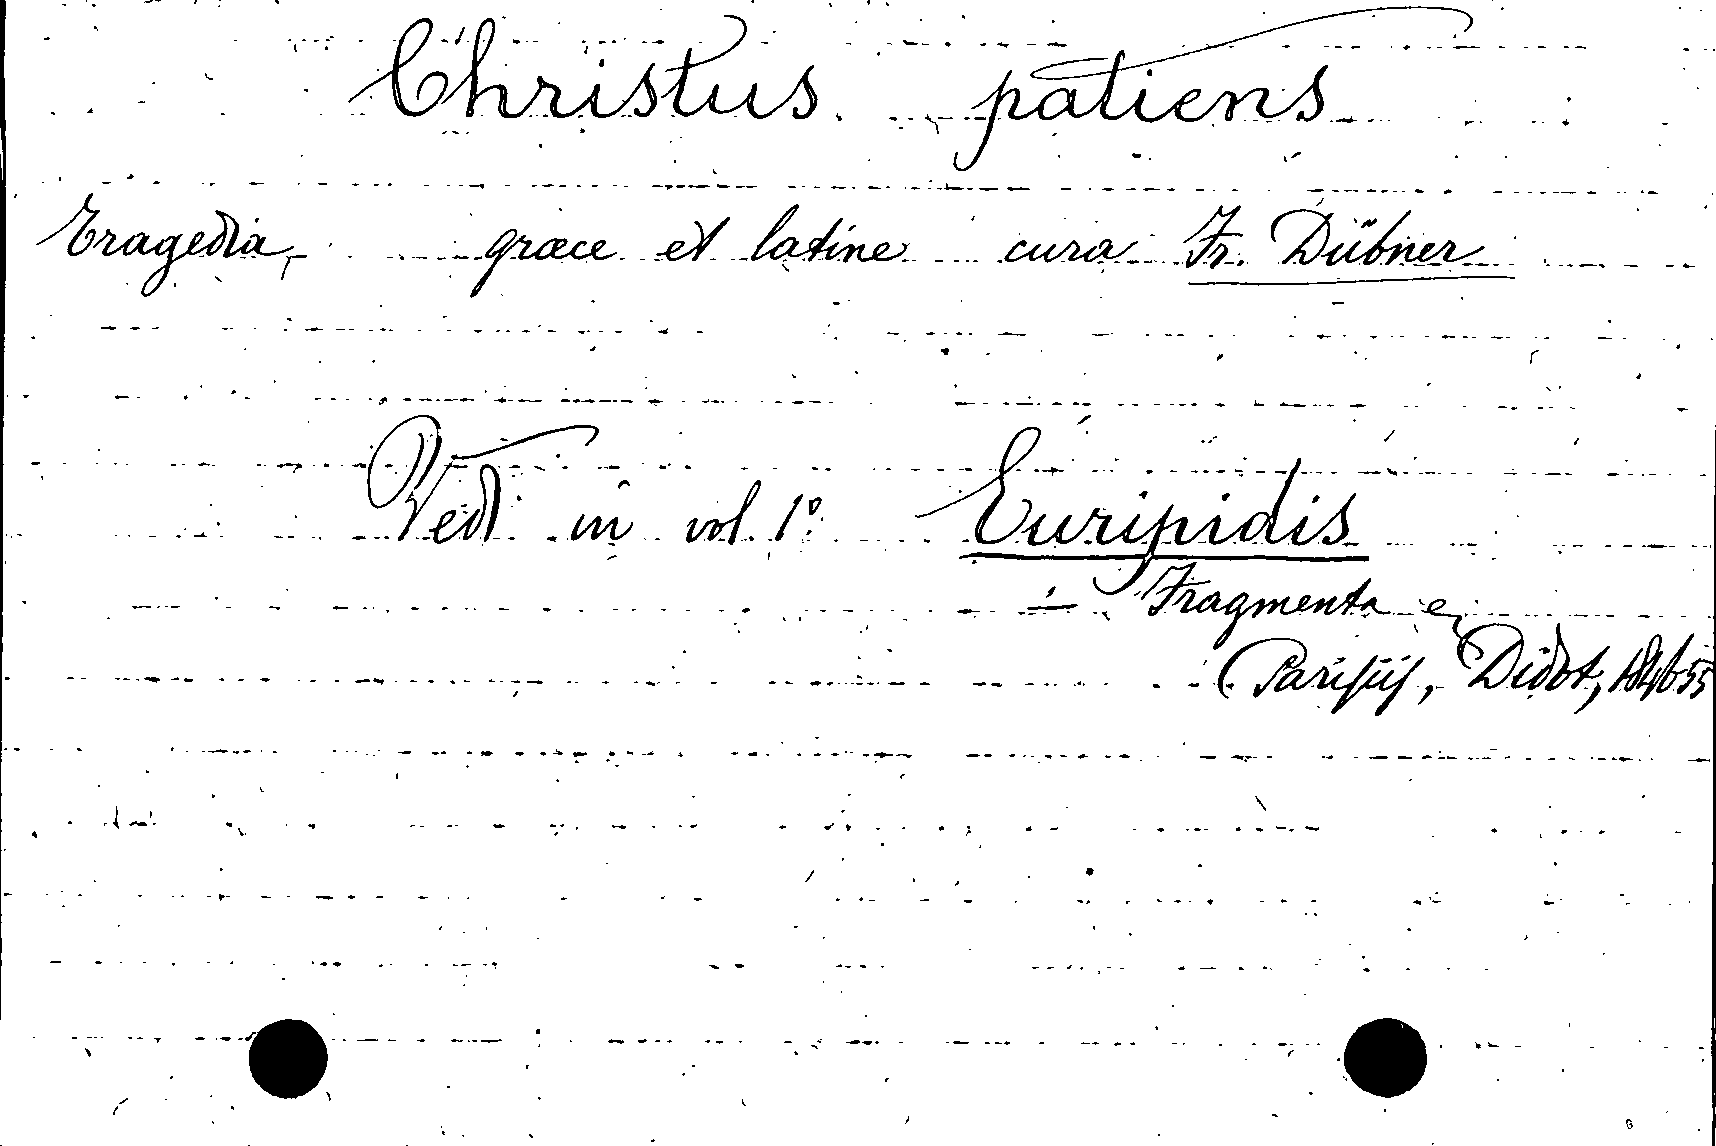 Christus patiens
Tragedia, græce et latine cura Fr. Dübner
Vedi in vol. 1º Euripidis
- Fragmenta
(Parisiis, Didot,